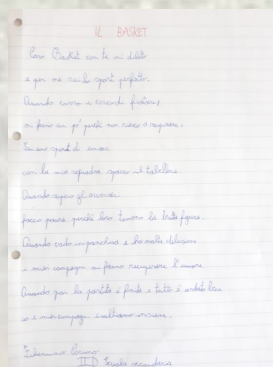 IL BASKET
Caro Basket con te mi diletto
e per me sei lo sport perfetto.
Quando corro e
mi fermo un po' perché non riesco a respirare.
Tu sei sport di
con la mia squadra spacco il tabellone
Quando segno gli avversari
paura perché loro temono la brutta figura.
Quando cado in panchina e ho molta delusione
i miei compagni mi fanno recuperare l'amore
Quando poi la partita è finita e tutto è andato bene
io e i miei compagni esultiamo insieme.
II D Scuola secondaria